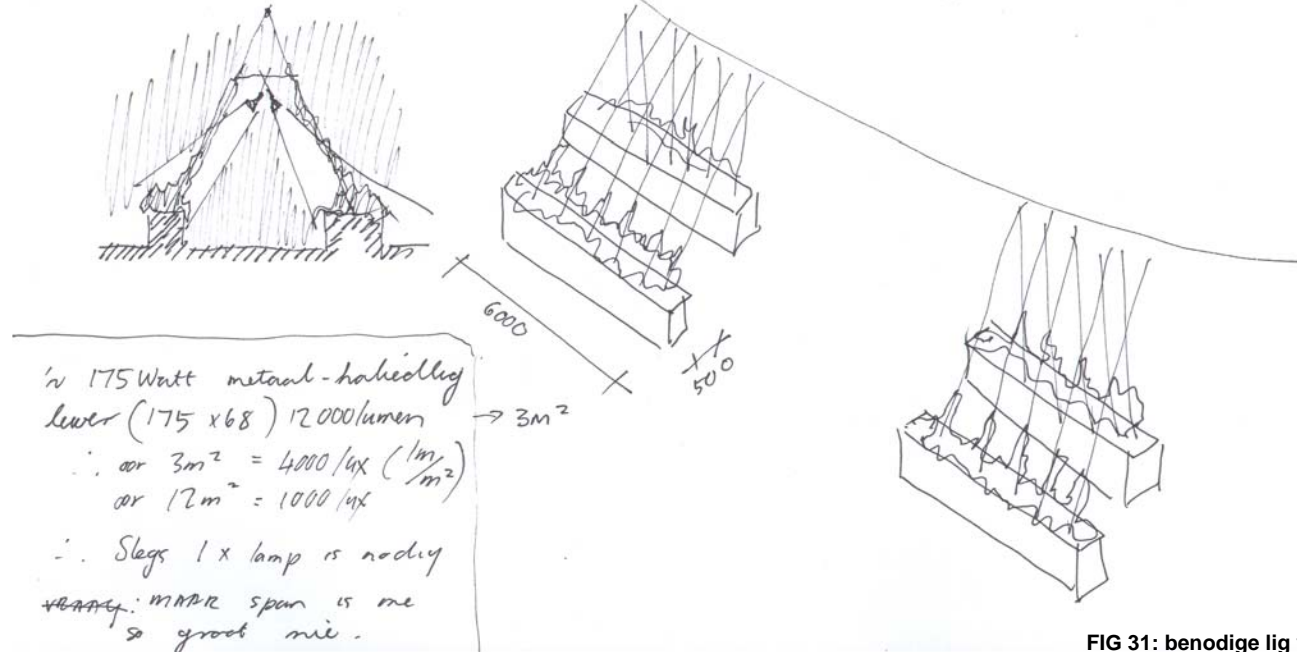 6000
500
'n 175 Watt metaal-haliedlig
lewer (175 x 68) 12 000 lumen → 3m²
∴ oor 3m² = 4000 lux (lm/m²)
oor 12m² = 1000 lux
∴ Slegs 1 x lamp is nodig
VRAAG: MAAR span is nie
so groot nie.
FIG 31: benodige lig